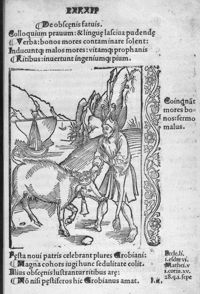 De obscenis fatuis.
Colloquium prauum: & linguę lasciua pudendę
Verba: bonos mores contaminare solent:
Inducuntq; malos mores: vitamq; prophanis
Ritibus: inuertunt ingeniumq; pium.
Coinq̃nāt
mores bo
nos: sermo
malus.
Festa noui patris celebrant plures Grobiani:
Magna cohors iugi hunc sedulitate colit.
Illius obscenis lustrantur ritibus arę:
Nō nisi pestiferos hic Grobianus amat.